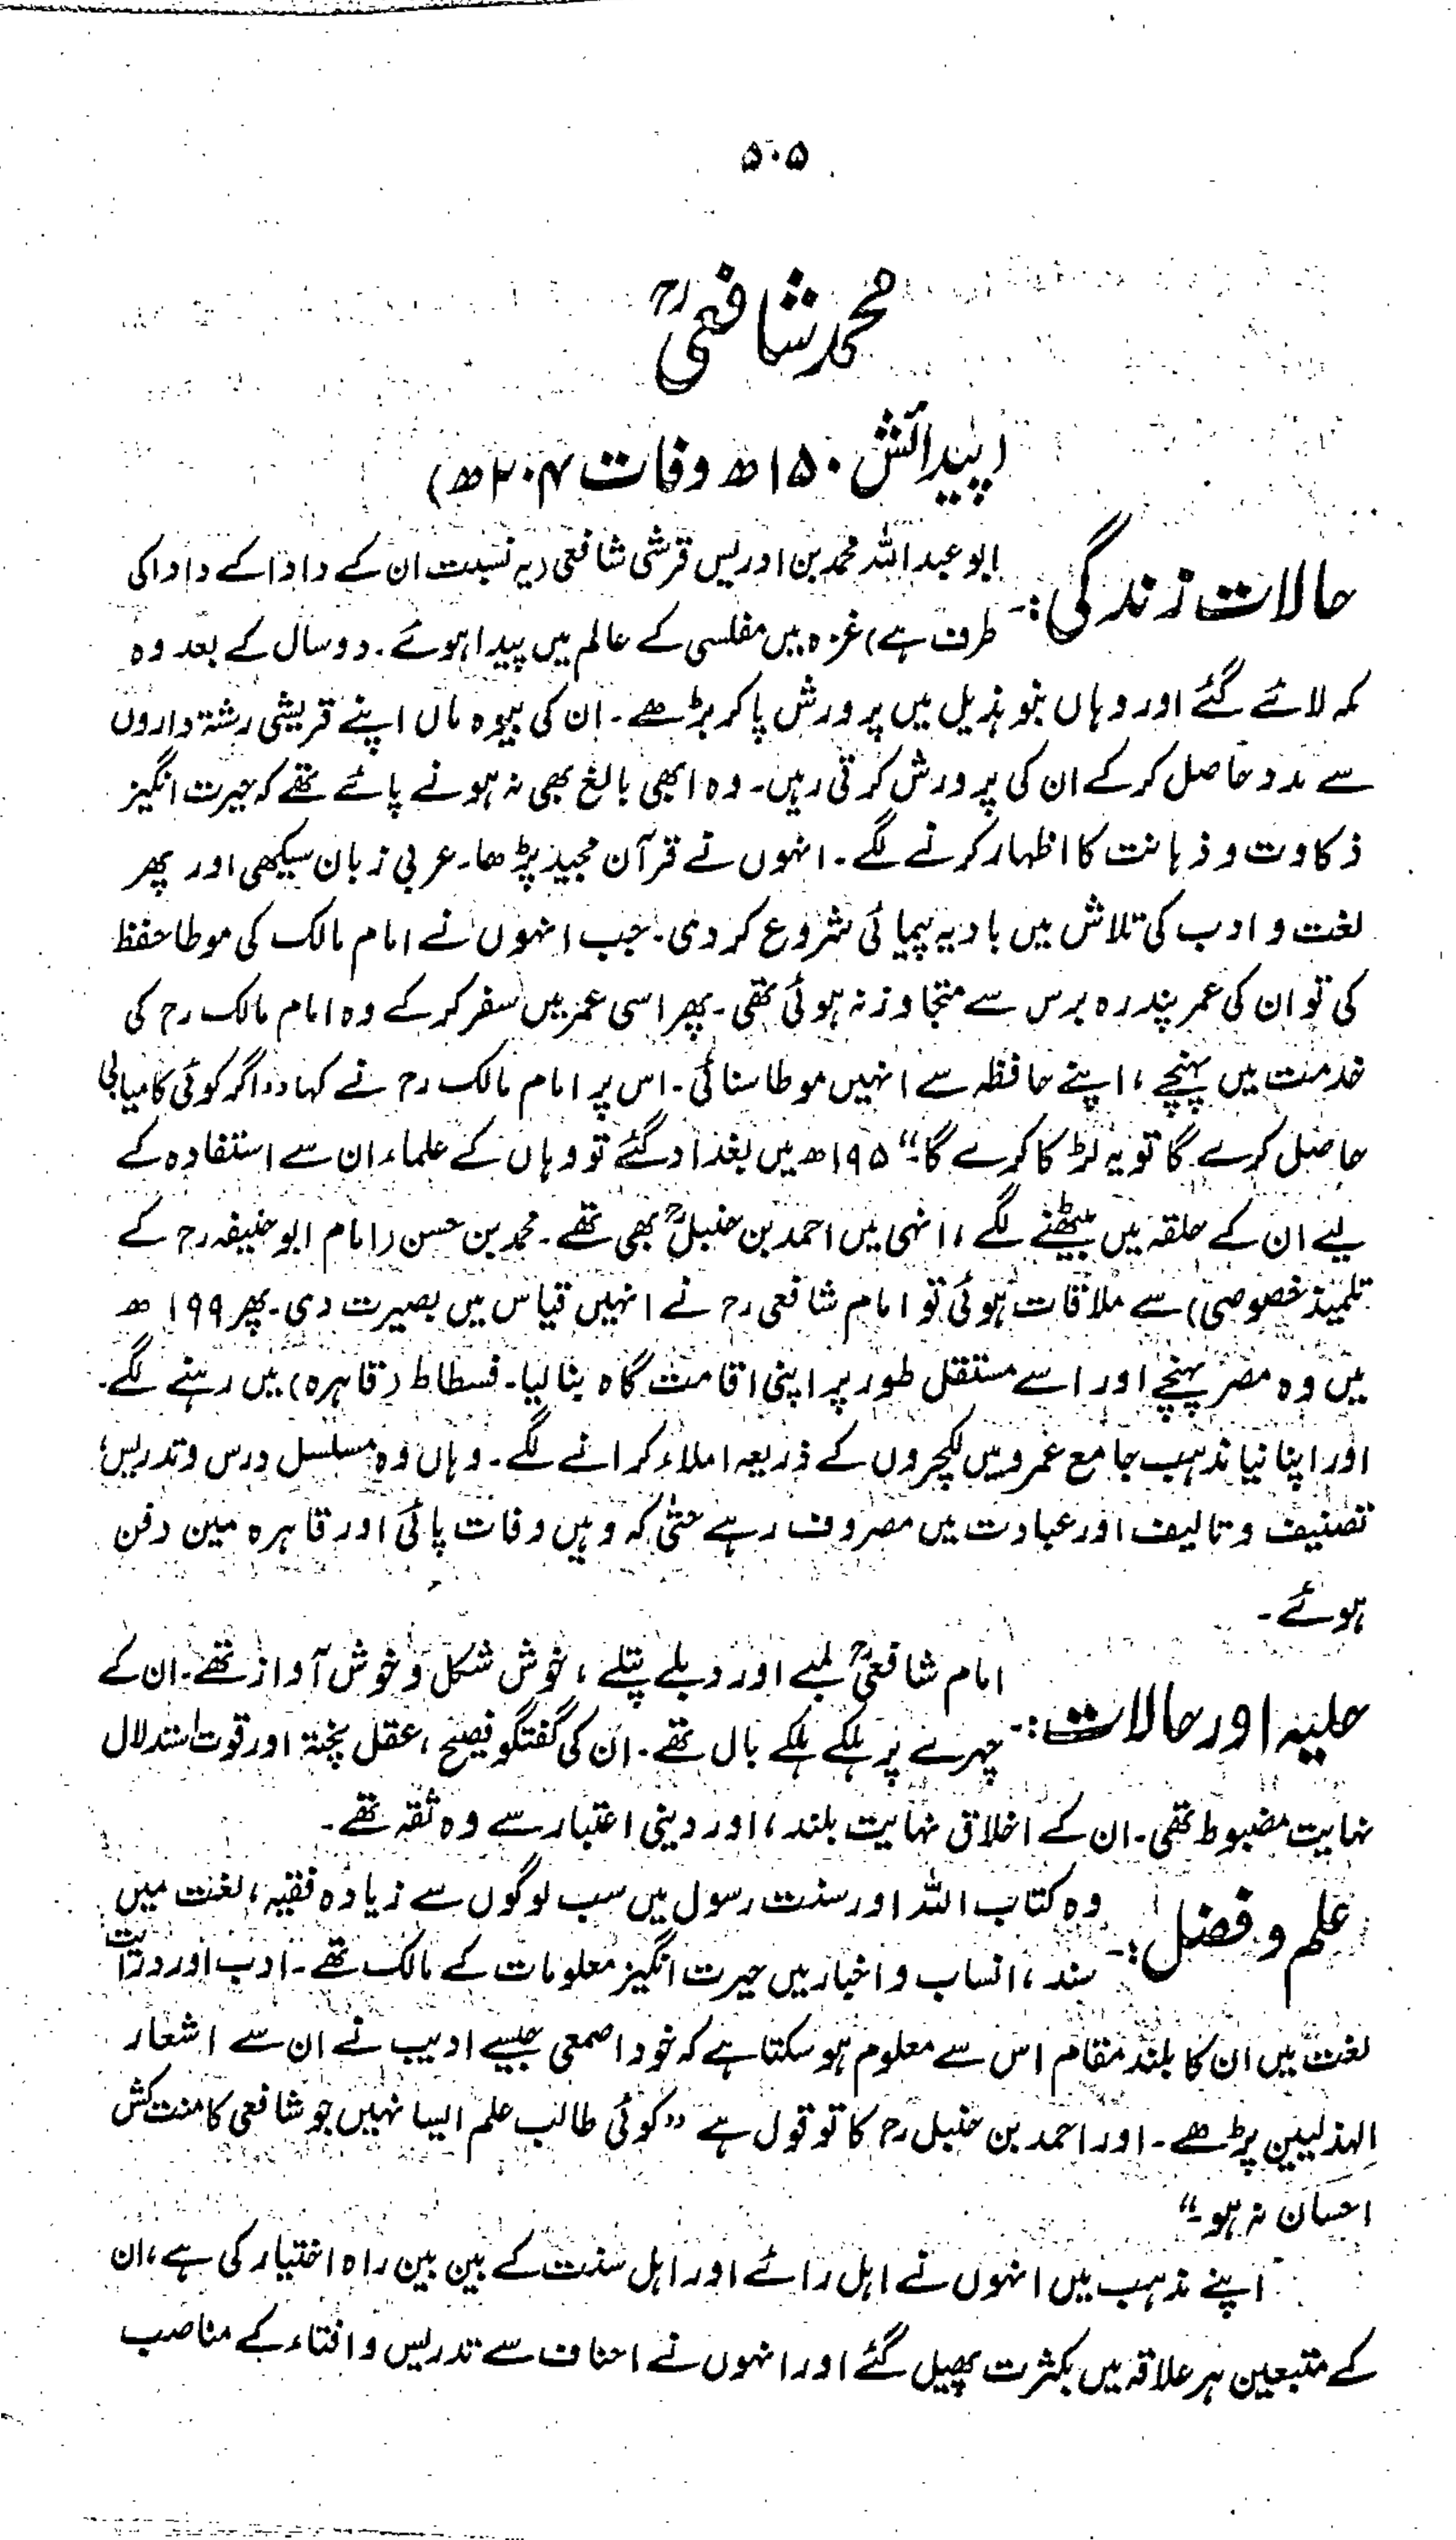 ۵۰۵
محمد شافعیؒ
(پیدائش ۱۵۰ھ وفات ۲۰۴ھ)
حالات زندگی:- ابو عبد اللہ محمد بن ادریس قرشی شافعی (یہ نسبت ان کے دادا کے دادا کی
طرف ہے) غزہ میں مفلسی کے عالم میں پیدا ہوئے۔ دو سال کے بعد وہ
مکہ لائے گئے اور وہاں بنو ہذیل میں پرورش پا کر بڑھے۔ ان کی بیوہ ماں اپنے قریشی رشتہ داروں
سے مدد حاصل کر کے ان کی پرورش کرتی رہیں۔ وہ ابھی بالغ بھی نہ ہونے پائے تھے کہ حیرت انگیز
ذکاوت و ذہانت کا اظہار کرنے لگے۔ انہوں نے قرآن مجید پڑھا۔ عربی زبان سیکھی اور پھر
لغت و ادب کی تلاش میں بادیہ پیمائی شروع کر دی۔ جب انہوں نے امام مالک کی موطا حفظ
کی تو ان کی عمر پندرہ برس سے متجاوز نہ ہوئی تھی۔ پھر اسی عمر میں سفر کر کے وہ امام مالک رح کی
خدمت میں پہنچے، اپنے حافظہ سے انہیں موطا سنائی۔ اس پر امام مالک رح نے کہا ”اگر کوئی کامیابی
حاصل کرے گا تو یہ لڑکا کرے گا۔“ ۱۹۵ھ میں بغداد گئے تو وہاں کے علماء ان سے استفادہ کے
لیے ان کے حلقہ میں بیٹھنے لگے، انہی میں احمد بن حنبلؒ بھی تھے۔ محمد بن حسن (امام ابو حنیفہ رح کے
تلمیذ خصوصی) سے ملاقات ہوئی تو امام شافعی رح نے انہیں قیاس میں بصیرت دی۔ پھر ۱۹۹ھ
میں وہ مصر پہنچے اور اسے مستقل طور پر اپنی اقامت گاہ بنا لیا۔ فسطاط (قاہرہ) میں رہنے لگے۔
اور اپنا نیا مذہب جامع عمرو میں لکچروں کے ذریعہ املاء کرانے لگے۔ وہاں وہ مسلسل درس و تدریس،
تصنیف و تالیف اور عبادت میں مصروف رہے حتیٰ کہ وہیں وفات پائی اور قاہرہ میں دفن
ہوئے۔
حلیہ اور حالات:- امام شافعیؒ لمبے اور دبلے پتلے، خوش شکل و خوش آواز تھے۔ ان کے
چہرے پر ہلکے ہلکے بال تھے۔ ان کی گفتگو فصیح، عقل پختہ اور قوت استدلال
نہایت مضبوط تھی۔ ان کے اخلاق نہایت بلند، اور دینی اعتبار سے وہ ثقہ تھے۔
علم و فضل:- وہ کتاب اللہ اور سنت رسول میں سب لوگوں سے زیادہ فقیہ، لغت میں
سند، انساب و اخبار میں حیرت انگیز معلومات کے مالک تھے۔ ادب اور درایت
لغت میں ان کا بلند مقام اس سے معلوم ہو سکتا ہے کہ خود اصمعی جیسے ادیب نے ان سے اشعار
الہذلیین پڑھے۔ اور احمد بن حنبل رح کا تو قول ہے ”کوئی طالب علم ایسا نہیں جو شافعی کا منت کش
احسان نہ ہو۔“
اپنے مذہب میں انہوں نے اہل رائے اور اہل سنت کے بین بین راہ اختیار کی ہے، ان
کے متبعین ہر علاقہ میں بکثرت پھیل گئے اور انہوں نے احناف سے تدریس و افتاء کے مناصب